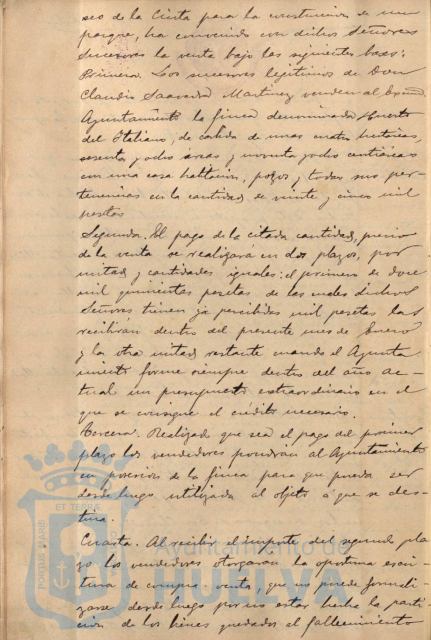 seo de la Cinta para la construcción de un
parque, ha convenido con dichos Señores
sucesores la venta bajo las siguientes bases:
Primera. Los sucesores legítimos de Don
Claudio Saavedra Martinez venden al Excmo.
Ayuntamiento la finca denominada Huerto
del Italiano, de cabida de unas cuatro hectáreas,
sesenta y ocho áreas y noventa y ocho centiáreas
con una casa habitación, pozos, y todas sus per-
tenencias en la cantidad de veinte y cinco mil
pesetas
Segunda. El pago de la citada cantidad, precio
de la venta se realizará en dos plazos, por
mitad y cantidades iguales: el primero de doce
mil quinientas pesetas de las cuales dichos
Señores tienen ya percibidas mil pesetas las
recibirán dentro del presente mes de Enero
y la otra mitad restante cuando el Ayunta
miento forme siempre dentro del año ac-
tual un presupuesto extraordinario en el
que se consigne el crédito necesario.
Tercera. Realizado que sea el pago del primer
plazo los vendedores pondrán al Ayuntamiento
en posesión de la finca para que pueda ser
desde luego utilizada al objeto a que se des-
tina.
Cuarta. Al recibir el importe del segundo pla
zo los vendedores otorgarán la oportuna escri-
tura de compra-venta, que no puede formali-
zarse desde luego por no estar hecha la parti-
ción de los bienes quedados al fallecimiento
PORTUS MARIS
ET TERRE
Ayuntamiento de
HUELVA